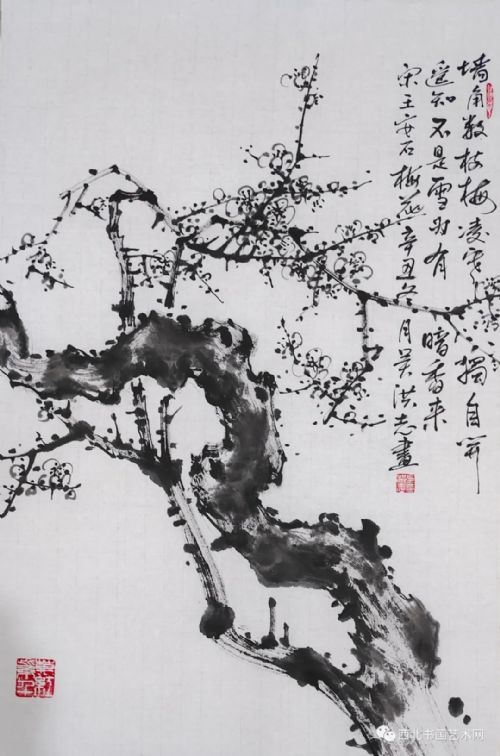 墙角数枝梅凌寒独自开
遥知不是雪为有暗香来
宋王安石梅花辛丑冬月吴洪志画
西北书画艺术网